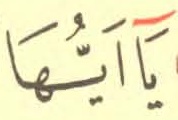 يَآ اَيُّهَا